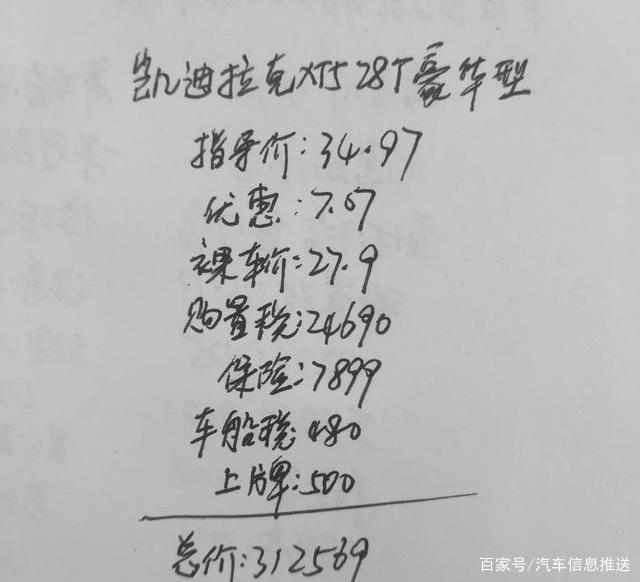 凯迪拉克XT5 28T豪华型
指导价:34.97
优惠:7.07
裸车价:27.9
购置税:24690
保险:7899
车船税:480
上牌:500
总价:312569
百家号/汽车信息推送